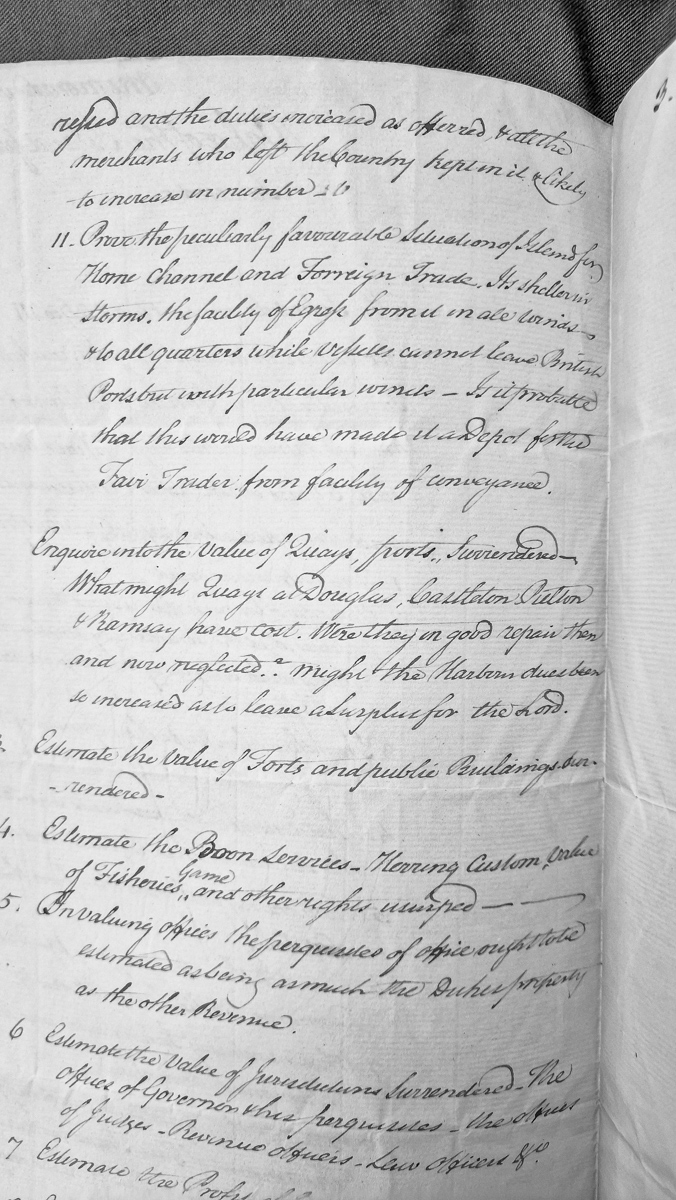 ressed and the duties increased as offerred, & all the
merchants who left the Country kept in it & likely
to increase in number
11. Prove the peculiarly favourable Situation of Island for
Home Channel and Forreign Trade. Its shelter in
Storms. the facility of Egress from it in all winds
& to all quarters while vessells cannot leave British
Ports but with particular winds — Is it probable
that this would have made it a Depot for the
Fair Trader from facility of conveyance.
Enquire into the Value of Quays, ports,, Surrendered —
What might Quays at Douglas, Castleton Peeltown
& Ramsay have cost. Were they in good repair then
and now neglected.. might the Harbour dues been
so increased as to leave a Surplus for the Lord.
Estimate the Value of Forts and public Buildings Sur-
-rendered -
4. Estimate the Boon Services - Herring Custom, Value
of Fisheries,, Game and other rights usurped —
5. In valuing offices the perquisites of office ought to be
estimated as being as much the Dukes property
as the other Revenue.
6 Estimate the Value of Jurisdictions Surrendered - The
offices of Governor & his perquisites - the offices
of Judges - Revenue officers - Law officers &c
7 Estimate the